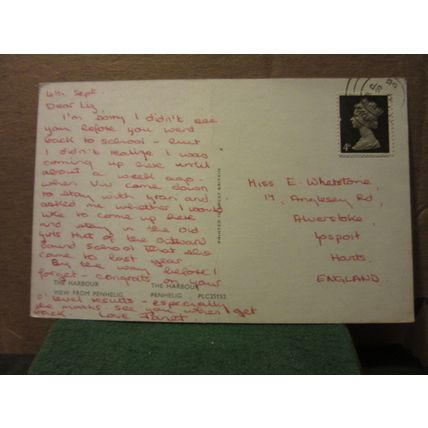 4th Sept
Dear Liz,
I'm sorry I didn't see
you before you went
back to school - but
I didn't realize I was
coming up here until
about a week ago -
when Viv came down
to stay with Gran and
asked me whether I would
like to come up here
and stay in the old
girls Hut of the Outward
Bound School that she
came to last year.
By the way before I
forget - congrats on your
THE HARBOUR
VIEW FROM PENHELIG
THE HARBOUR
PENHELIG PLC25152
'O' level results - especially
the maths. See you when I get
back Love Janet
PRINTED IN GREAT BRITAIN
4d
Miss E. Whetstone
17, Anglesey Rd,
Alverstoke,
Gosport
Hants.
ENGLAND